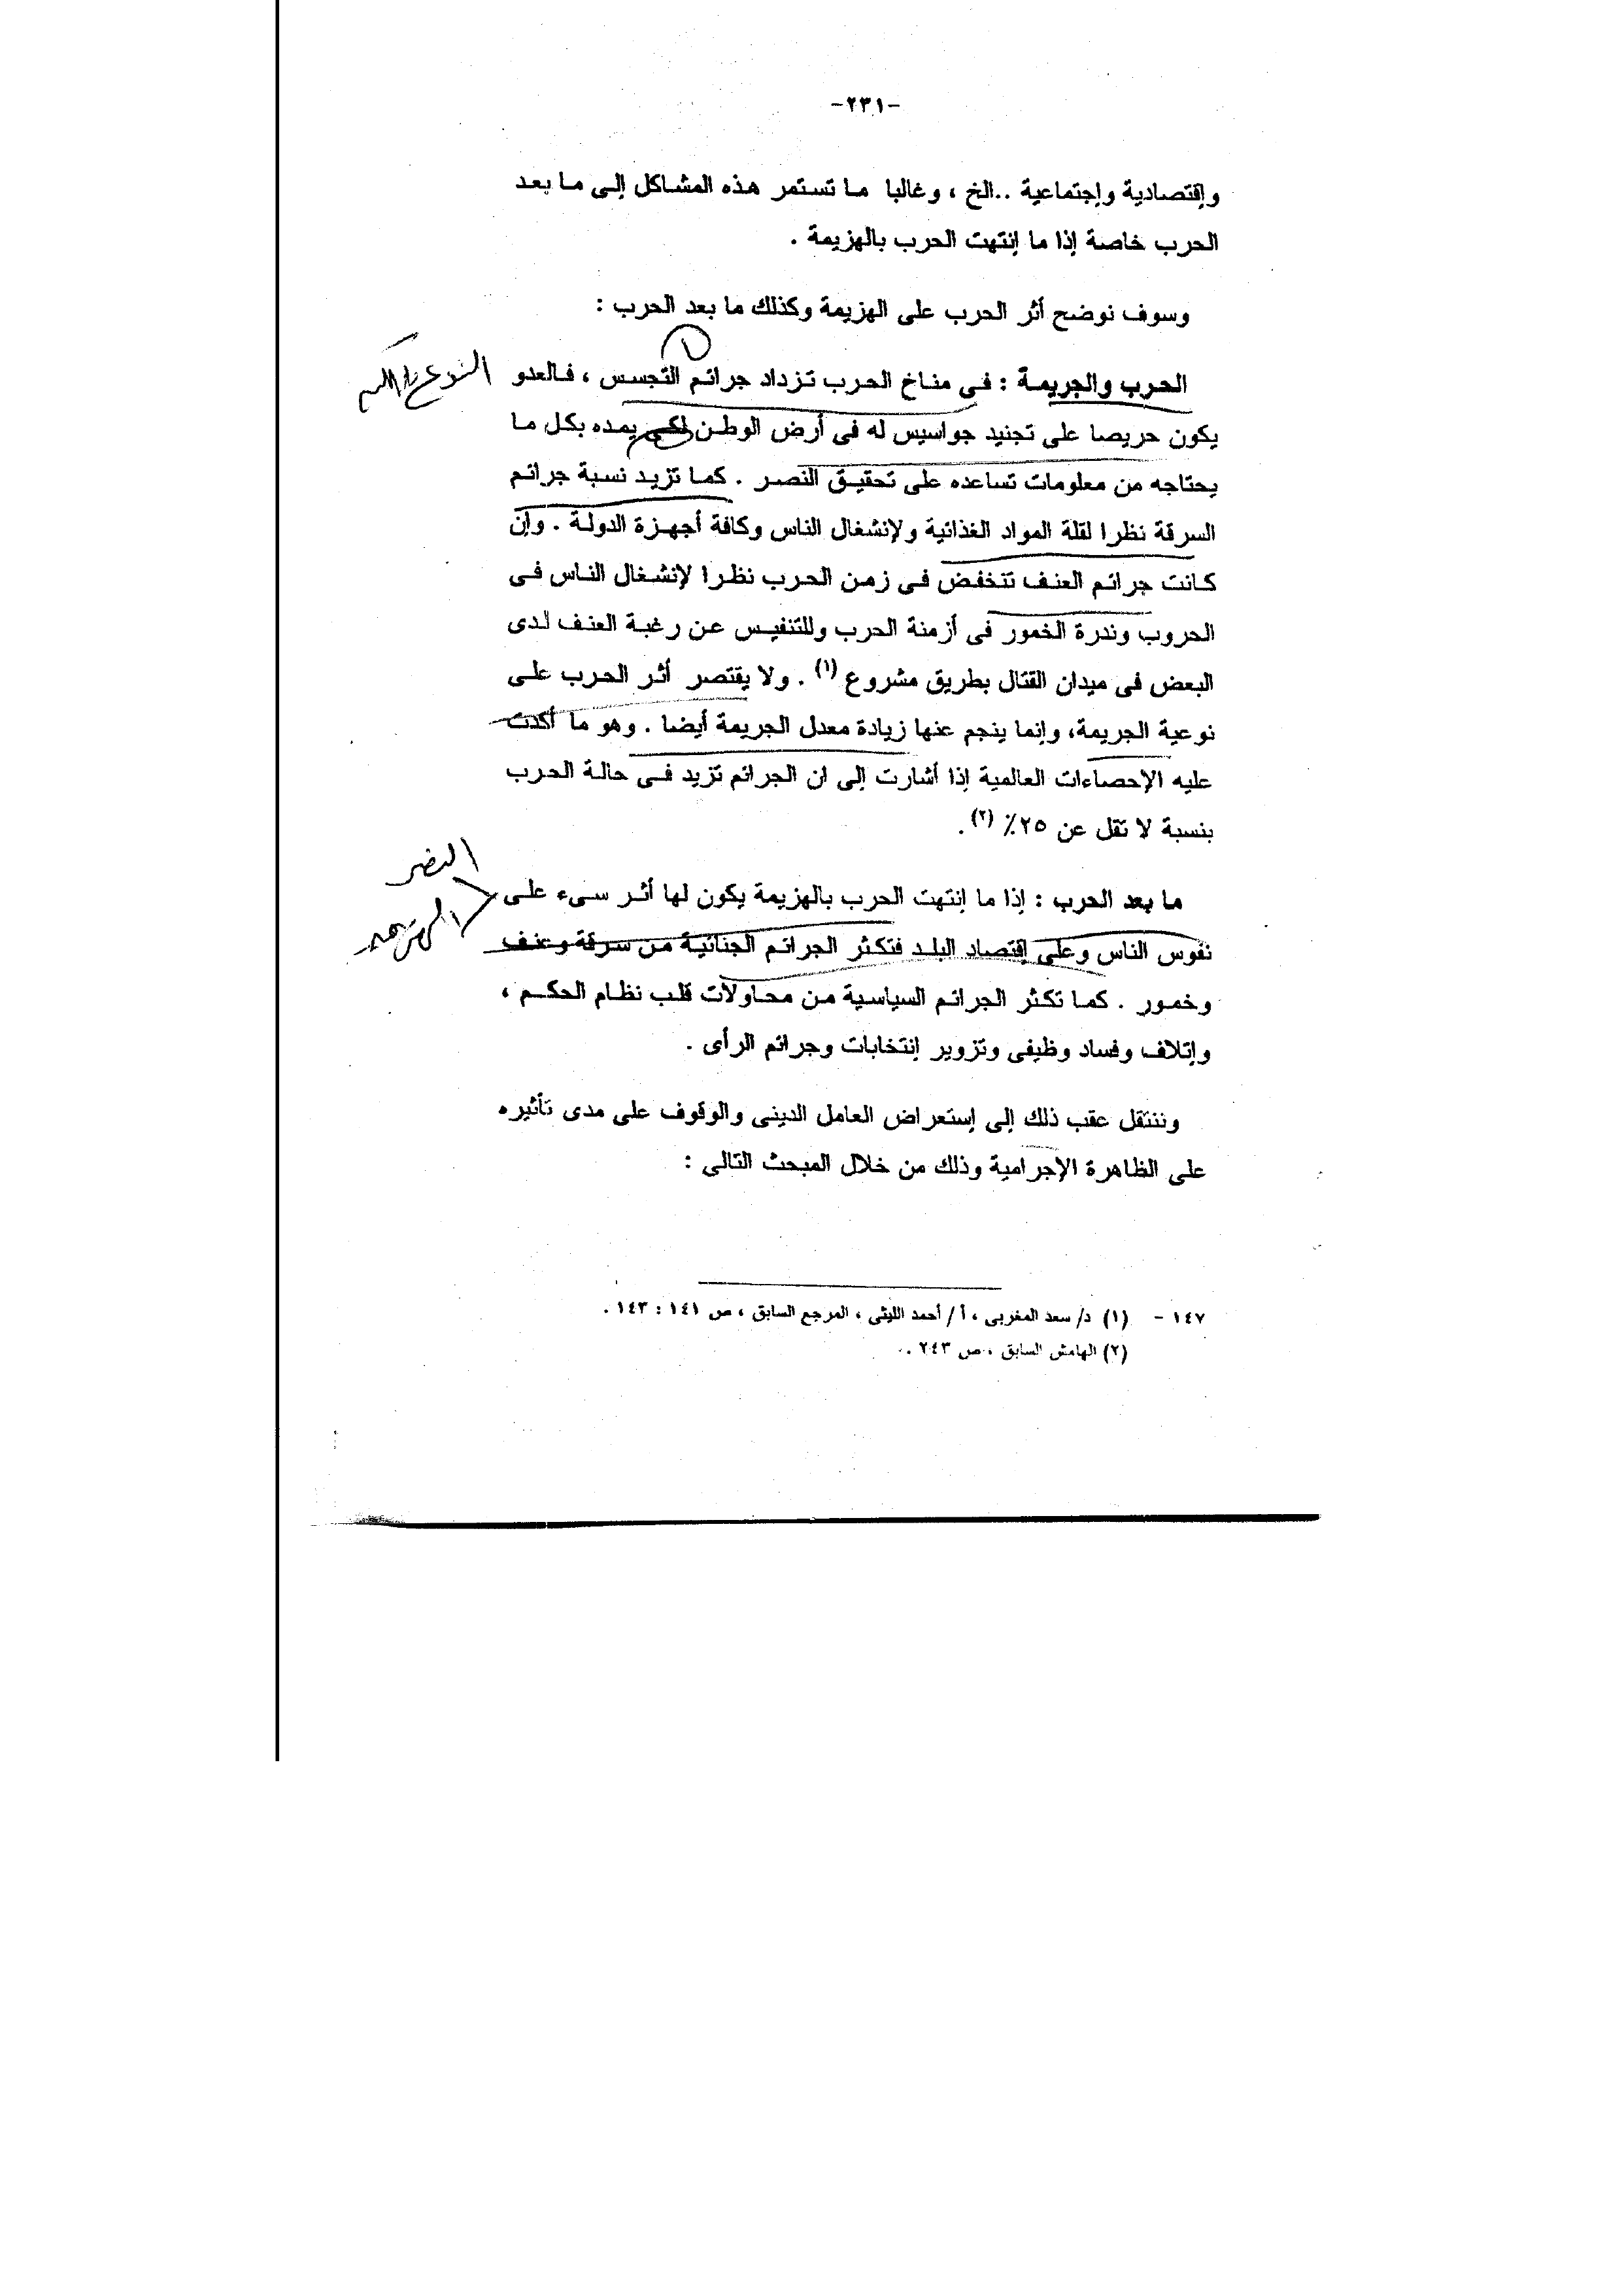 -٢٣١-
وإقتصادية وإجتماعية ..الخ ، وغالبا ما تستمر هذه المشاكل إلى ما بعد
الحرب خاصة إذا ما إنتهت الحرب بالهزيمة .
وسوف نوضح أثر الحرب على الهزيمة وكذلك ما بعد الحرب :
١
الحرب والجريمة : فى مناخ الحرب تزداد جرائم التجسس ، فالعدو
يكون حريصا على تجنيد جواسيس له فى أرض الوطن لكى يمده بكل ما
يحتاجه من معلومات تساعده على تحقيق النصر . كما تزيد نسبة جرائم
السرقة نظرا لقلة المواد الغذائية ولإنشغال الناس وكافة أجهزة الدولة . وإن
كانت جرائم العنف تنخفض فى زمن الحرب نظرا لإنشغال الناس فى
الحروب وندرة الخمور فى أزمنة الحرب وللتنفيس عن رغبة العنف لدى
البعض فى ميدان القتال بطريق مشروع (١) . ولا يقتصر أثر الحرب على
نوعية الجريمة، وإنما ينجم عنها زيادة معدل الجريمة أيضا . وهو ما أكدت
عليه الإحصاءات العالمية إذا أشارت إلى ان الجرائم تزيد فى حالة الحرب
بنسبة لا تقل عن ٢٥٪ (٢).
النصر
الهزيمة
ما بعد الحرب : إذا ما إنتهت الحرب بالهزيمة يكون لها أثر سىء على
نفوس الناس وعلى إقتصاد البلد فتكثر الجرائم الجنائية من سرقة وعنف
وخمور . كما تكثر الجرائم السياسية من محاولات قلب نظام الحكم ،
وإتلاف وفساد وظيفى وتزوير إنتخابات وجرائم الرأى .
وننتقل عقب ذلك إلى إستعراض العامل الدينى والوقوف على مدى تأثيره
على الظاهرة الإجرامية وذلك من خلال المبحث التالى :
١٤٧ - (١) د/ سعد المغربى ، أ / أحمد الليثى ، المرجع السابق ، ص ١٤١ : ١٤٣ .
(٢) الهامش السابق ، ص ٢٤٣ .